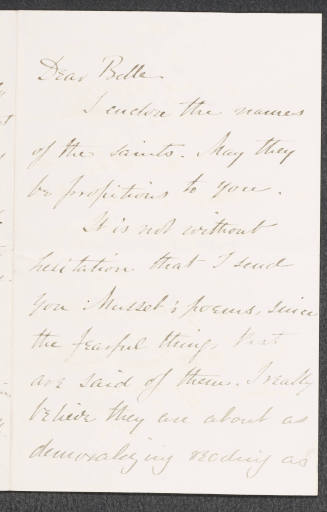 Dear Belle
I enclose the names
of the saints. May they
be propitious to you.
It is not without
hesitation that I send
you Musset's poems, since
the fearful things that
are said of them. I really
believe they are about as
demoralizing reading as